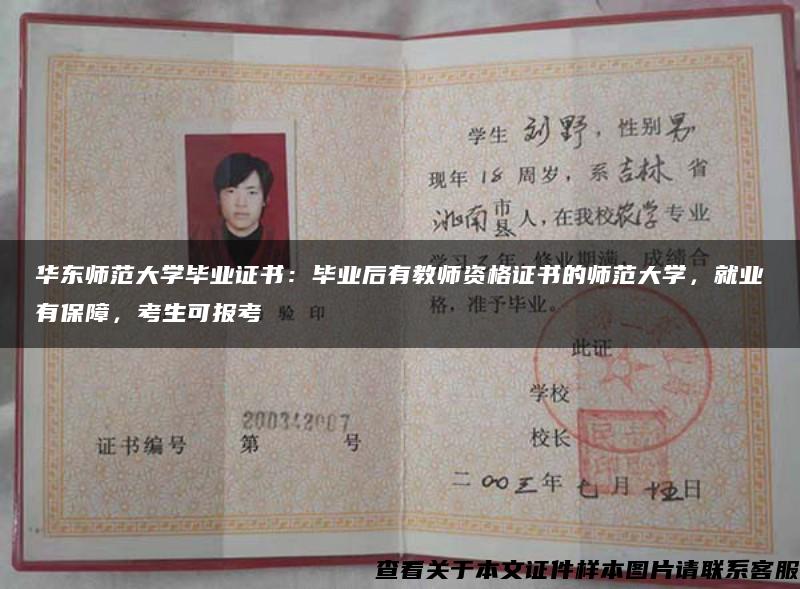 学生 刘野，性别男
现年 18 周岁，系吉林 省
洮南 市县 人，在我校农学专业
学习 三 年，修业期满，成绩合
格，准予毕业。
华东师范大学毕业证书：毕业后有教师资格证书的师范大学，就业
有保障，考生可报考
验 印
此证
学校
校长
二〇〇三年 七 月 十五日
200342007
证书编号 第 号
查看关于本文证件样本图片请联系客服